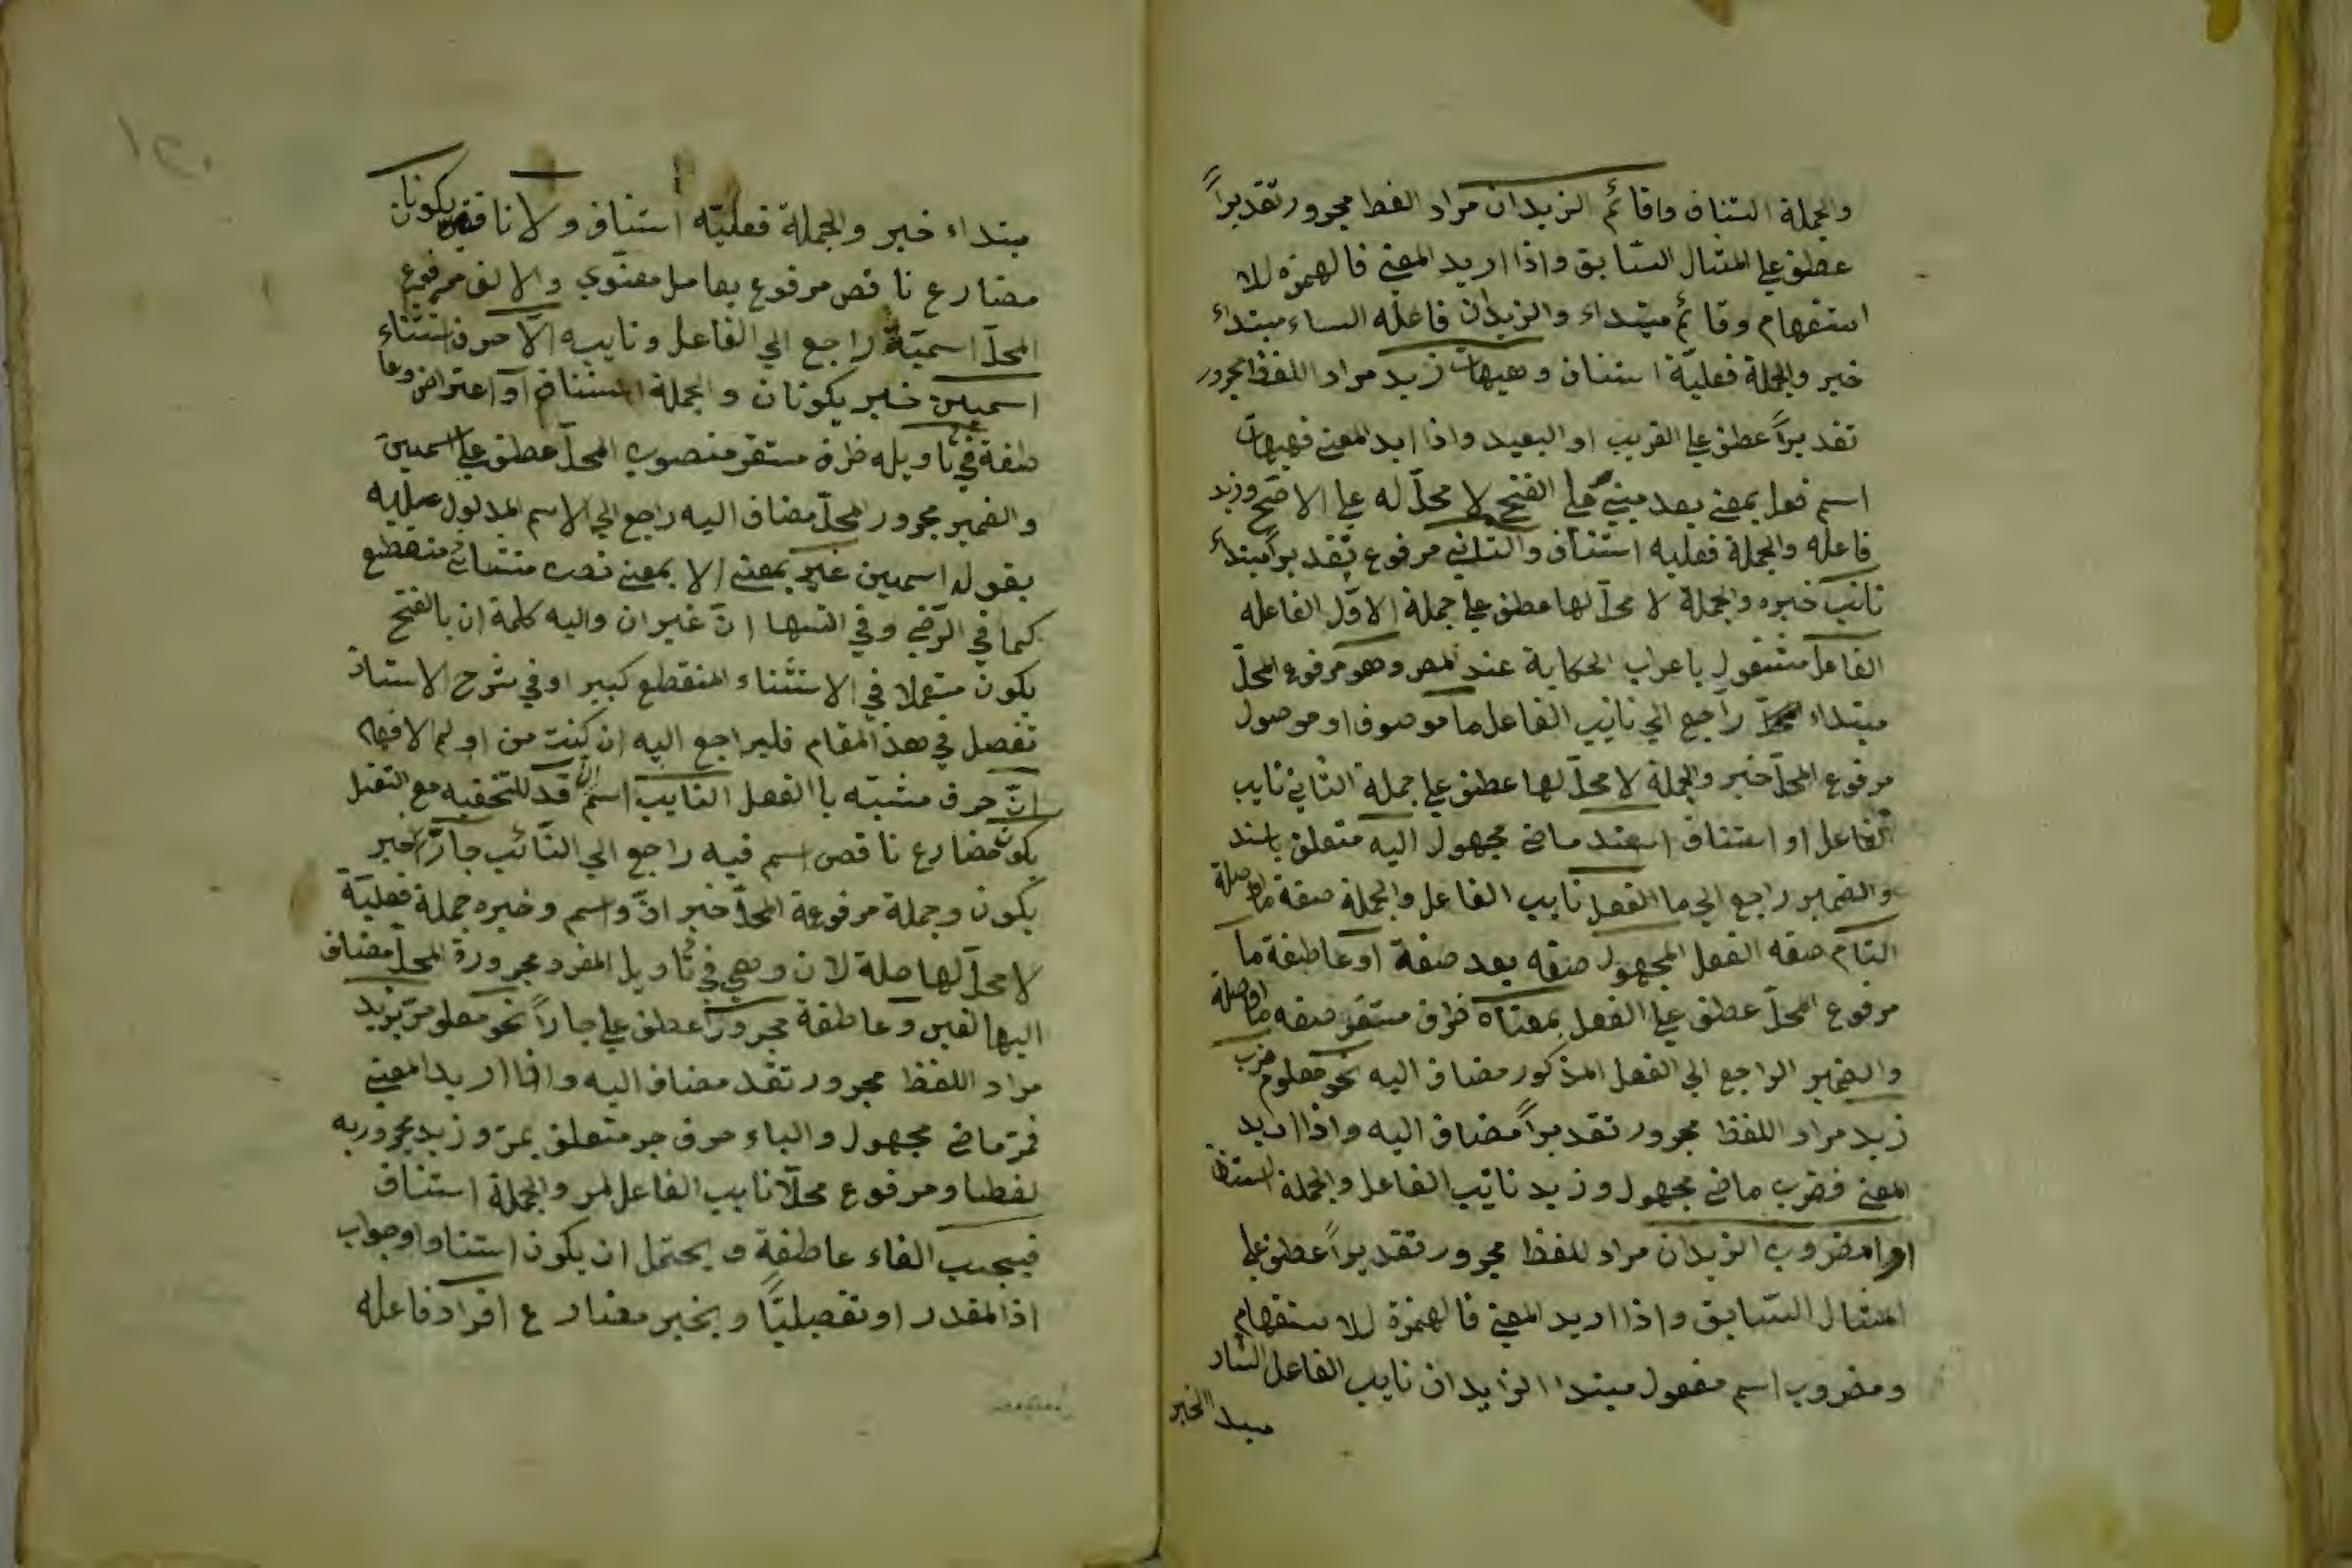 والجملة استناف وقائم الزيدان مراد الفظ مجرور تقديراً
عطف على المثال السّابق واذا اريد المعنى فالهمزة للا
استفهام وقائم مبتداء والزيدان فاعله الساد مبتداء
خبر والجملة فعليّة استناف وهيهات زيد مراد اللفظ مجرور
تقديراً عطف على القريب او البعيد واذا ابد المعنى فهيهات
اسم فعل بمعنى بعد مبنيّ على الفتح لا محلّ له على الاصّح وزيد
فاعله والجملة فعليه استناف والثاني مرفوع تقديراً مبتداء
نائب خبره والجملة لا محلّ لها عطف على جملة الاوّل الفاعله
الفاعل مشغول باعراب الحكاية عند المص وهو مرفوع المحلّ
مبتداء راجع الي نايب الفاعل ما موصوف او موصول
مرفوع المحلّ خبر والجملة لا محلّ لها عطف على جملة الثاني نايب
الفاعل او استناف اسند ماضى مجهول اليه متعلق باسند
والضمير راجع الي ما الفعل نايب الفاعل والجملة صفة ما او صلة
التام صفه الفعل المجهول صفه بعد صفة او عاطفة ما
مرفوع المحلّ عطف على الفعل بمعناه ظرف مستقر صفه ما او صلة
والضمير الراجع الي الفعل المذكور مضاف اليه نحو معلوم ضرب
زيد مراد اللفظ مجرور تقديراً مضاف اليه واذا اريد
المعنى فضرب ماضى مجهول وزيد نائب الفاعل والجملة استناف
او امضروب الزيدان مراد للفظ مجرور تقديراً عطف على
المثال السّابق واذا اريد المعنى فالهمزة للاستفهام
ومضروب اسم مفعول مبتدا الزايدان نايب الفاعل الساد
مبتد الخبر
مبتداء خبر والجملة فعليّه استناف ولا ناقصين يكونان
مضارع ناقص مرفوع بعامل معنّوي والالف مرفوع
المحلّ اسميّة راجع الي الفاعل ونايبه الّا حرف استثناء
اسمين خبر يكونان والجملة استناف او اعتراض وعا
طفة في تاويله ظرف مستقر منصوب المحلّ عطف على اسمين
والضمير مجرور المحلّ مضاف اليه راجع الي الاسم المدلول عليه
بقوله اسمين غير بمعنى الا بمعنى منقطع
كما في الرّضى وفي ان غير ان واليه كلمة ان بالفتح
يكون مستعملا في الاستثناء المنقطع كبير او في شرح الاستاذ
تفصل في هذ المقام فلير اجع اليه ان كنت من اولى الافهام
انّ حرف مشبّه باالفعل النايب اسم ان قد للتحقيه مع التقليل
يكون مضارع ناقص اسم فيه راجع الي النّائب جارّا خبر
يكون وجملة مرفوعة المحلّ خبر انّ واسم وخبره جملة فعليّة
لا محلّ لها صلة لان وهي في تأويل المفرد مجرورة المحلّ مضاف
اليها لغير وعاطفة مجروراً عطف على جاراً نحو معلوم مرّ بزيد
مراد اللفظ مجرور تقد مضاف اليه واذا اريد المعنى
فمرّ ماضى مجهول والباء حرف جر متعلق بمرّ وزيد مجرور به
لفظا ومرفوع محلّا نايب الفاعل لمر والجملة استناف
فيجب الفاء عاطفة ويحتمل ان يكون استناوا وجواب
اذ المقدر او تفصيليّاً ويخبر مضارع افراد فاعله